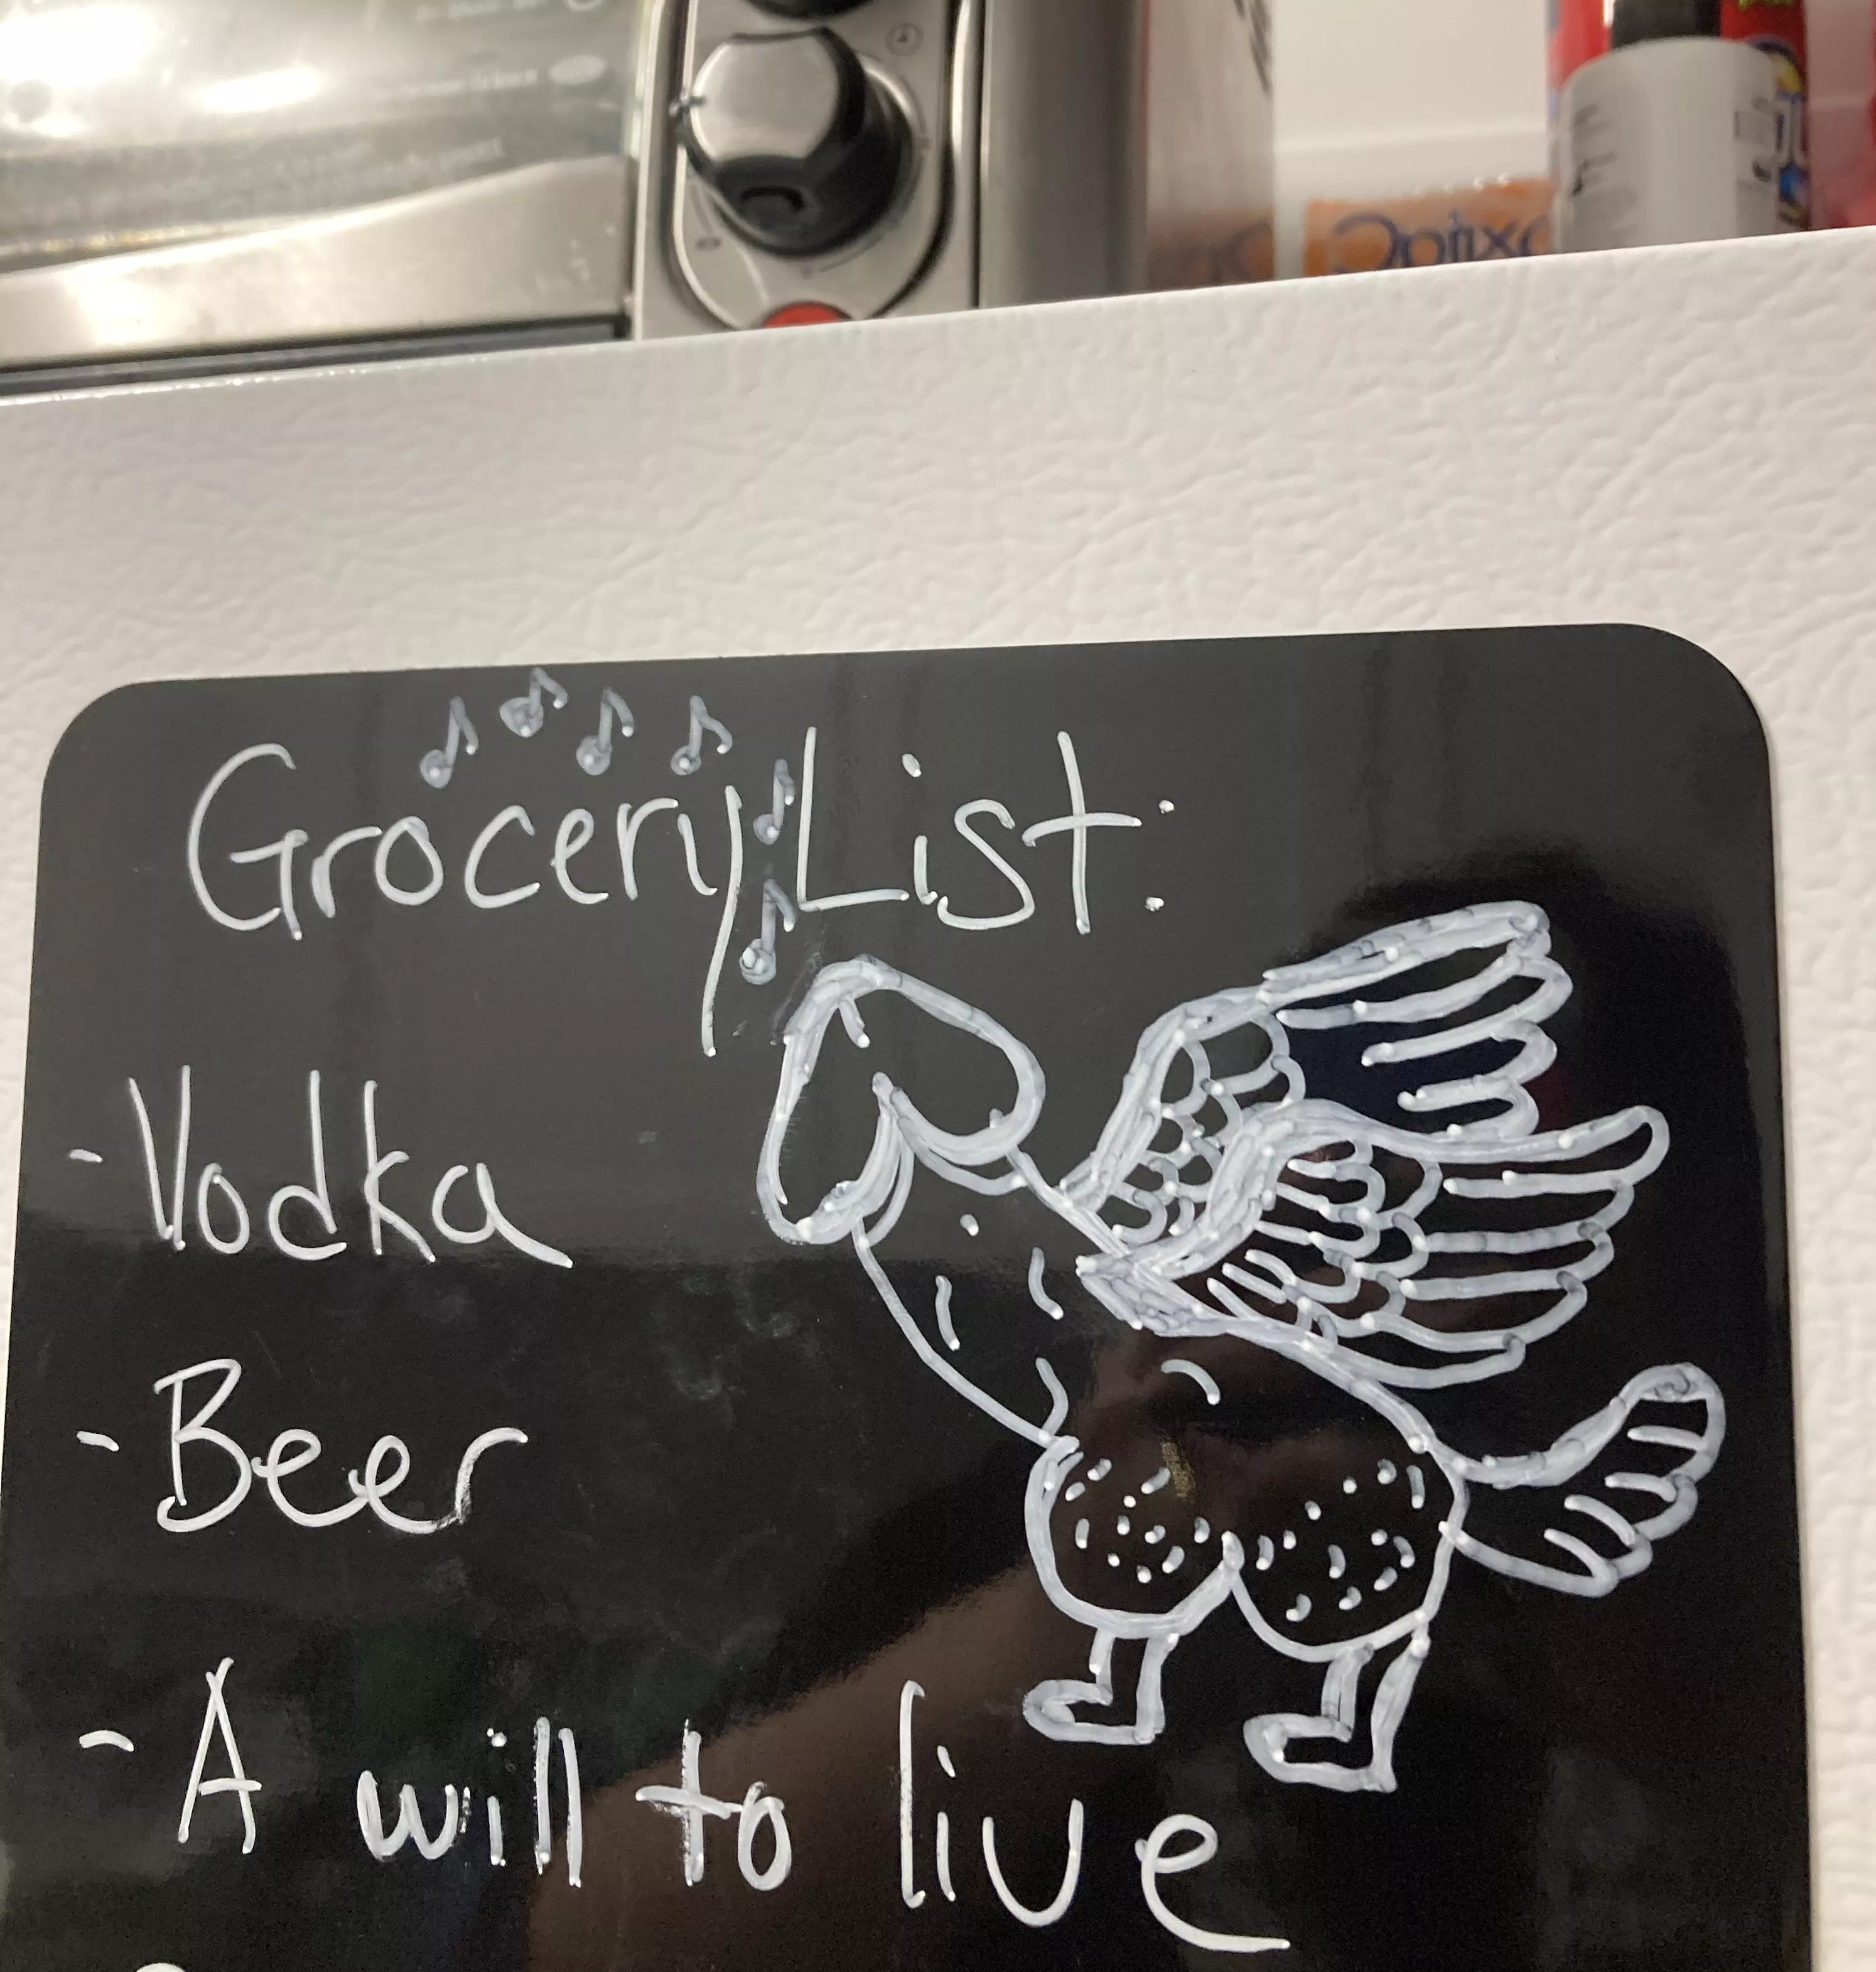 Grocery List:
- Vodka
- Beer
- A will to live